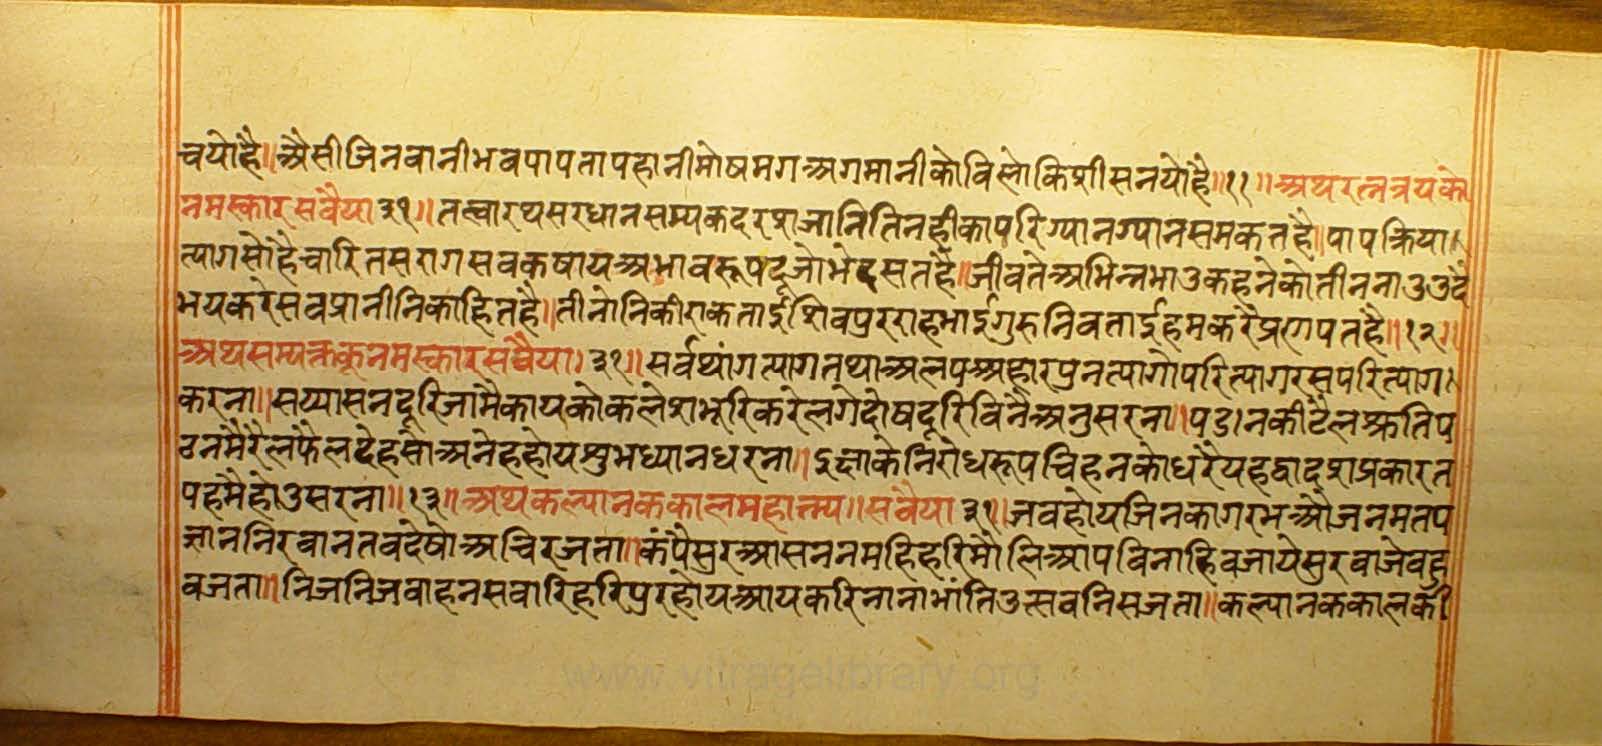 चयोहै॥अैसीजिनवानीभवपापतापहानीमोषमगअगमानीकोविलोकिशीसनयोहै॥११॥अथरत्नत्रयको
नमस्कारसवैया३१॥तत्वारथसरधानसम्यकदरशजानितिनहीकापरिग्यानग्यानसमकतहै॥पापक्रिया।
त्यागसोहैचारितसरागसवकषायअभावरूपदूजोभेदसतहै॥जीवतेअभिन्नभाउकहनेकोतीननाउउदै
भयकरेसवप्रानीनिकाहितहै॥तीनोनिकीराकताईशिवपुरराहभाईगुरुनिवताईहमकरैप्रणपतहै॥१२॥
अथसम्यक्तकूनमस्कारसवैया।३१॥सर्वथांगत्यागतथाअलपअहारपुनत्यागोपरित्यागरसपरित्याग।
करना॥सय्यासनदूरिजामैकायकोकलेशभूरिकरेलगेदोषदूरिविनैअनुसरना॥पडानकीटैलश्रुतिप
ठनमैरैलफैलदेहसोंअनेहहोयशुभध्यानधरना॥इछाकेनिरोधरूपचिहनकोधरैयहद्वादशप्रकारत
पहमैहोउसरना॥१३॥अथकल्यानककालमहात्म्य॥सवैया३१॥जवहोयजिनकागरभऔजनमतप
ज्ञाननिरवानतवदेषोअचिरजता॥कंपैसुरआसननमहिहरिमौलिआपविनाहिवजायेसुरवाजेवहु
वजता॥निजनिजवाहनसवारिहरिपुरहोयआयकरिनानाभांतिउत्सवनिसजता॥कल्यानककालकी
www.vitragelibrary.org